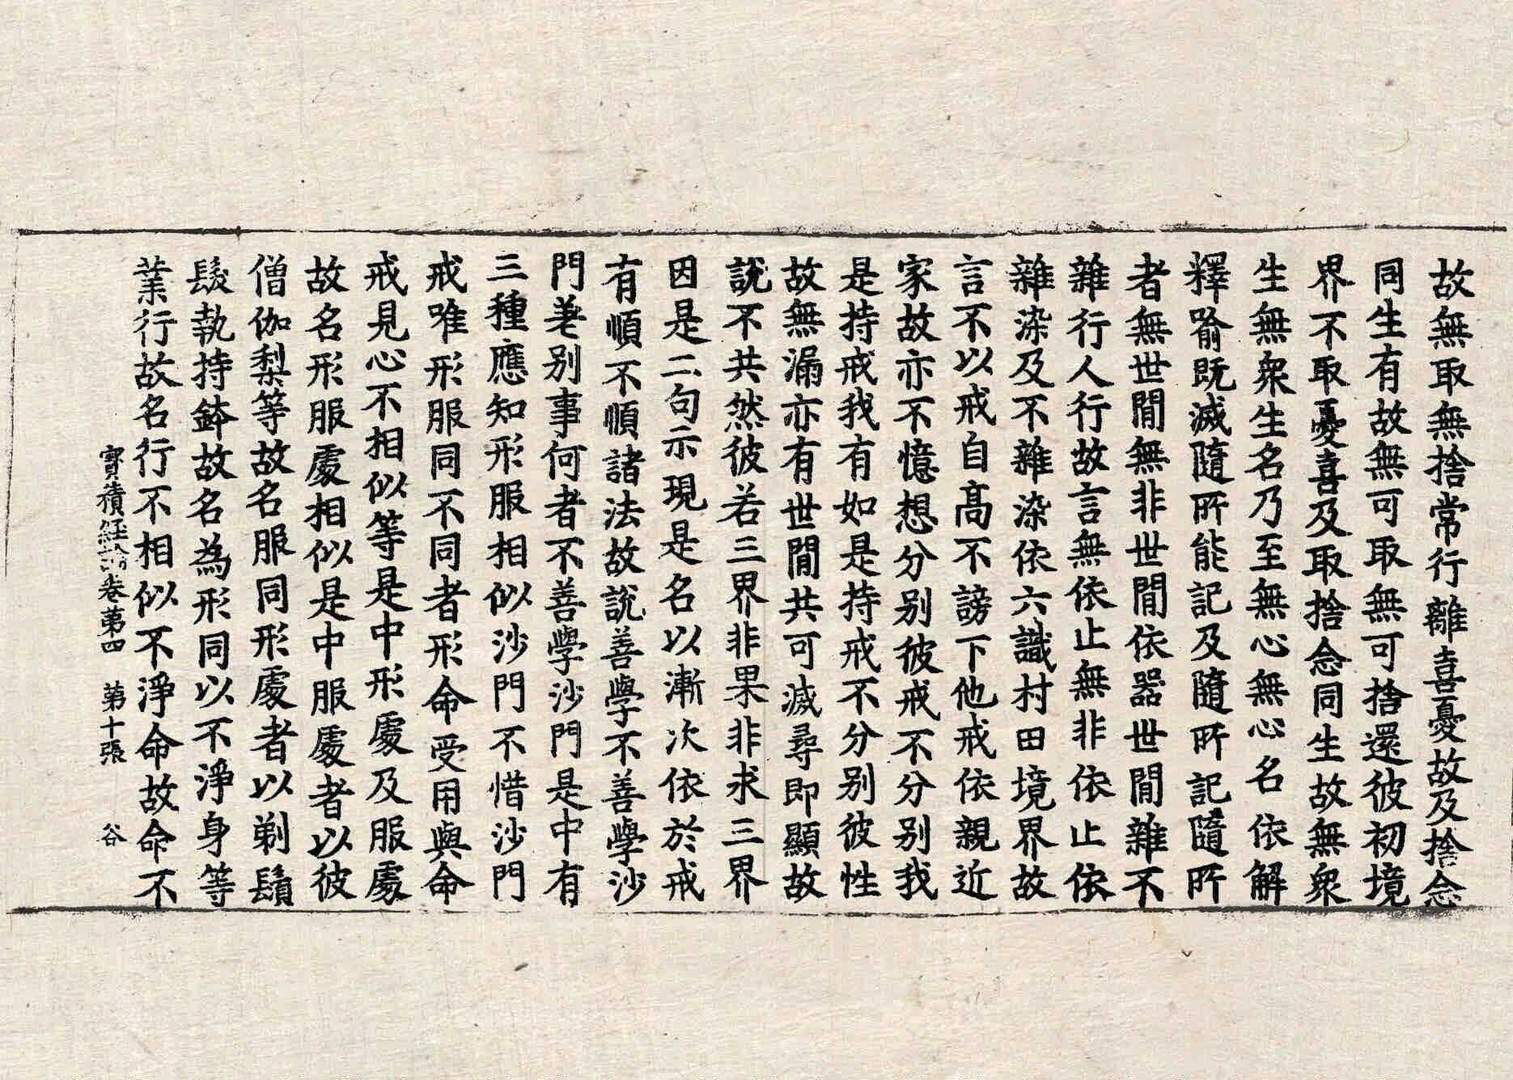 故無取無捨常行離喜憂故及捨念
同生有故無可取無可捨還彼初境
界不取憂喜及取捨念同生故無衆
生無衆生名乃至無心無心名依解
釋喻既滅隨所能記及隨所記隨所
者無世間無非世間依器世間雜不
雜行人行故言無依止無非依止依
雜染及不雜染依六識村田境界故
言不以戒自高不謗下他戒依親近
家故亦不憶想分別彼戒不分別我
是持戒我有如是持戒不分別彼性
故無漏亦有世間共可滅尋即顯故
說不共然彼若三界非果非求三界
因是二句示現是名以漸次依於戒
有順不順諸法故說善學不善學沙
門差別事何者不善學沙門是中有
三種應知形服相似沙門不惜沙門
戒唯形服同不同者形命受用與命
戒見心不相似等是中形處及服處
故名形服處相似是中服處者以彼
僧伽梨等故名服同形處者以剃鬚
髮執持鉢故名為形同以不淨身等
業行故名行不相似不淨命故命不
寶積經論卷第四 第十張 谷